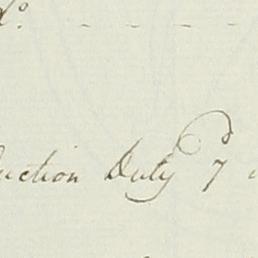 do - - - -
uction Duty 7